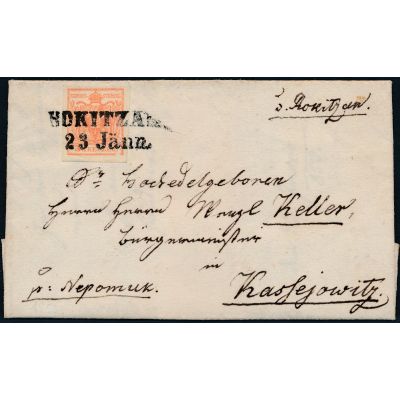 ROKITZAN
23 Jänn.
v. Rokitzan.
Sr Hochedelgeboren
Herrn Herrn Wenzl Keller,
Bürgermeister
in
p: Nepomuk. Kassejowitz.